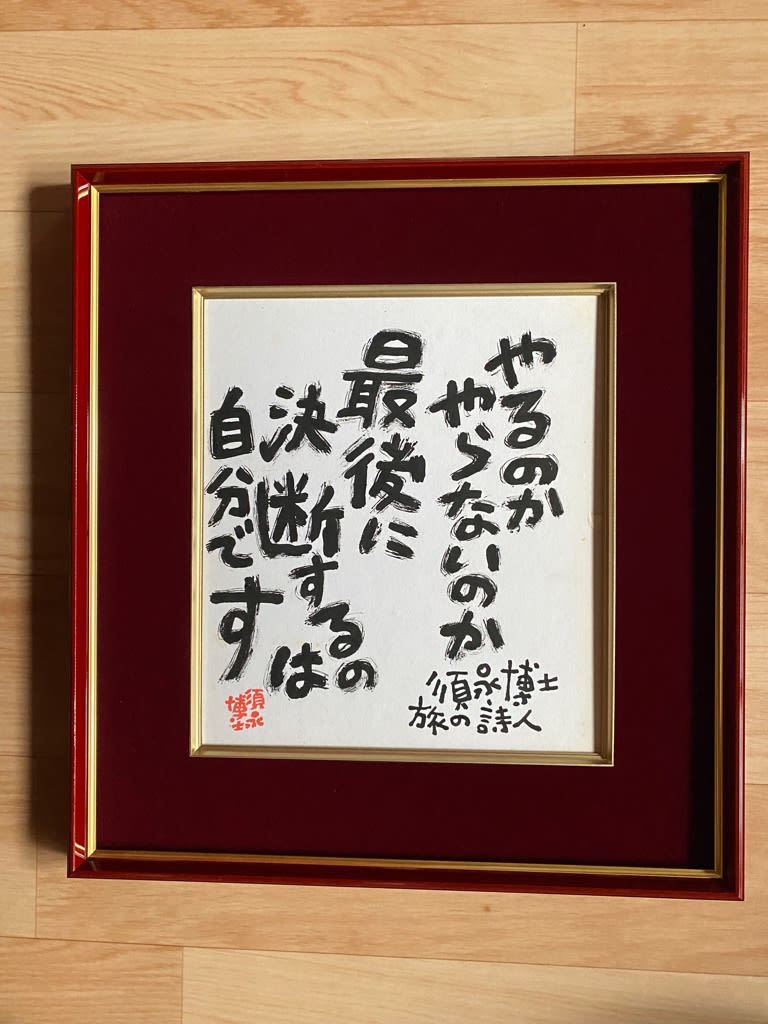 やるのか
やらないのか
最後に
決断するの
は
自分です
須永博士
旅の詩人
須永
博士